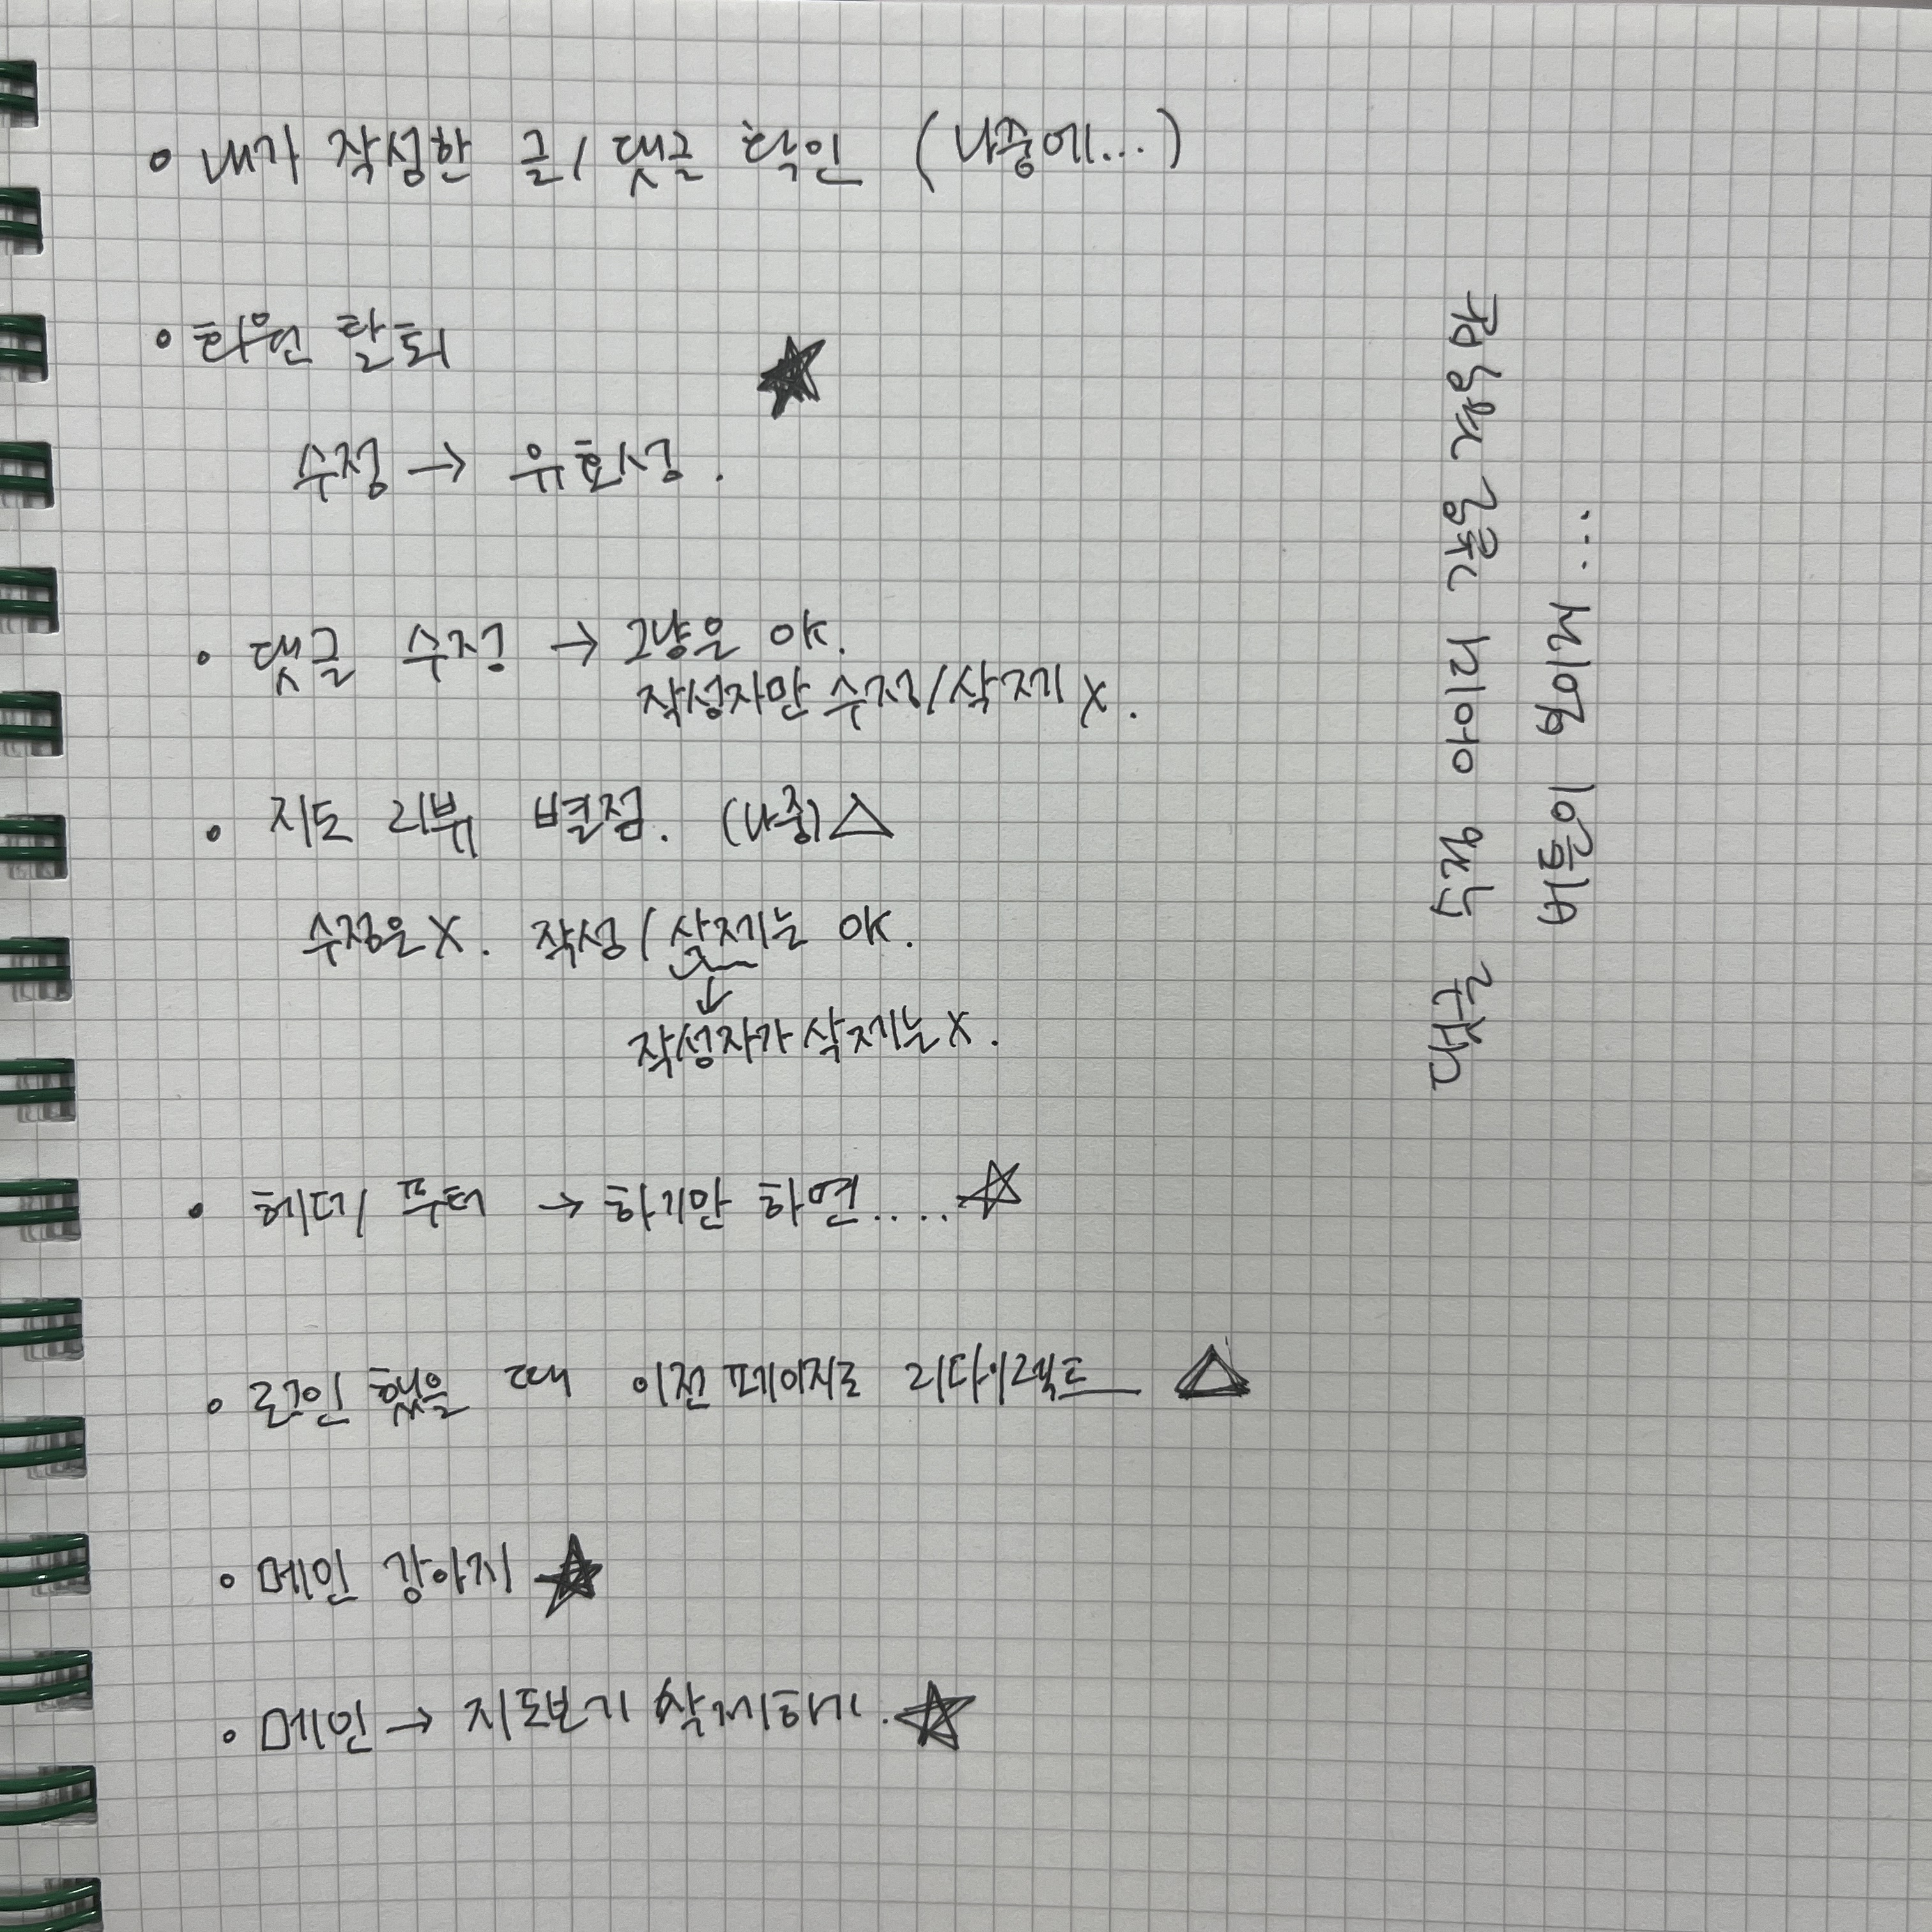 • 내가 작성한 글/댓글 확인 (나중에...)
• 회원 탈퇴 ★
수정 → 유효성.
• 댓글 수정 → 그냥은 OK.
작성자만 수정/삭제 X.
• 지도 리뷰 별점. (나중) △
수정은 X. 작성/삭제는 OK.
↓
작성자가 삭제는 X.
• 헤더/푸터 → 하기만 하면.... ☆
• 로그인 했을 때 이전 페이지로 리다이렉트 △
• 메인 강아지 ★
• 메인 → 지도보기 삭제하기. ☆